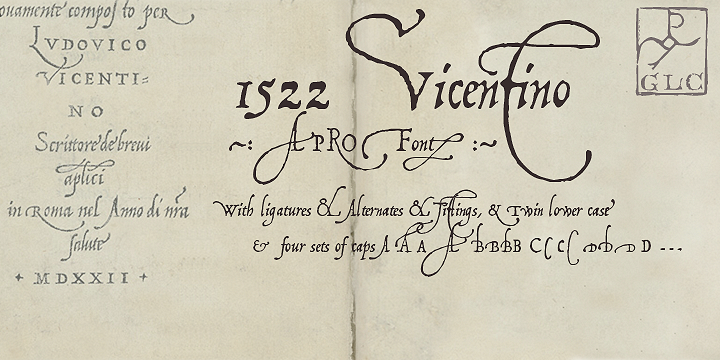 ouamente compos to per
LVDOVICO
VICENTI=
NO
Scrittore de breui
aplici
in Roma nel Anno di nra
salute
+ MDXXII +
1522 Vicentino
~: A PRO Font :~
With ligatures & Alternates & Tittlings, & Twin lower case
& four sets of caps A A A A B B B B C C C C D D D D ---
GLC